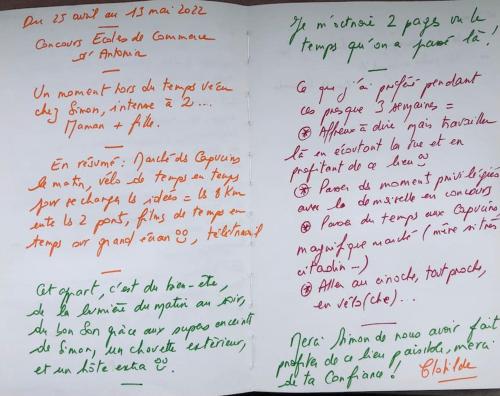 Du 25 avril au 13 mai 2022
Concours Ecoles de Commerce
d'Antonia
Un moment hors du temps vécu
chez Simon, intense à 2...
Maman + fille.
En résumé : Marché des Capucins
le matin, vélo de temps en temps
pour se changer les idées = les 8 km
entre les 2 ponts, films de temps en
temps sur grand écran, télétravail
Cet appart, c'est du bien-être,
de la lumière du matin au soir,
du bon son grâce aux supers enceintes
de Simon, un chouette extérieur,
et un hôte extra.
Je m'octroie 2 pages vu le
temps qu'on a passé là !
Ce que j'ai préféré pendant
ces presque 3 semaines =
* Affreux à dire, mais travailler
là en écoutant la rue et en
profitant de ce lieu
* Passer des moments privilégiés
avec la demoiselle en concours
* Passer du temps aux Capucins,
magnifique marché (mère si très
citadin...)
* Aller au cinoche, tout proche,
en vélo(che)...
Merci Simon de nous avoir fait
profiter de ce lieu paisible, merci
de ta confiance !
Clotilde